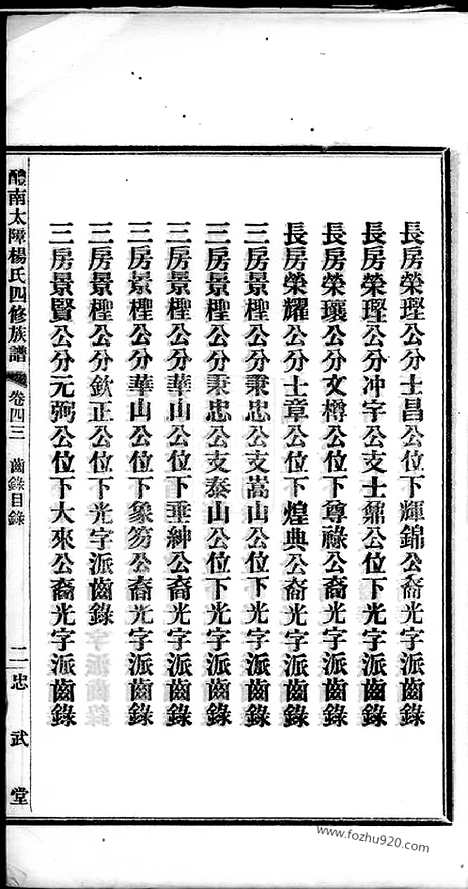 長房榮瑆公分士昌公位下輝錦公裔光字派齒錄
長房榮瑆公分冲字公支士鼐公位下光字派齒錄
長房榮瓖公分文樽公位下尊祿公裔光字派齒錄
長房榮耀公分士章公位下煌典公裔光字派齒錄
三房景檉公分秉忠公支嵩山公位下光字派齒錄
三房景檉公分秉忠公支泰山公位下光字派齒錄
三房景檉公分華山公位下垂紳公裔光字派齒錄
三房景檉公分華山公位下象笏公裔光字派齒錄
三房景檉公分欽正公位下光字派齒錄
三房景賢公分元弼公位下大來公裔光字派齒錄
醴南太障楊氏四修族譜
卷四三
齒錄目錄
二
忠武堂
www.fozhu920.com